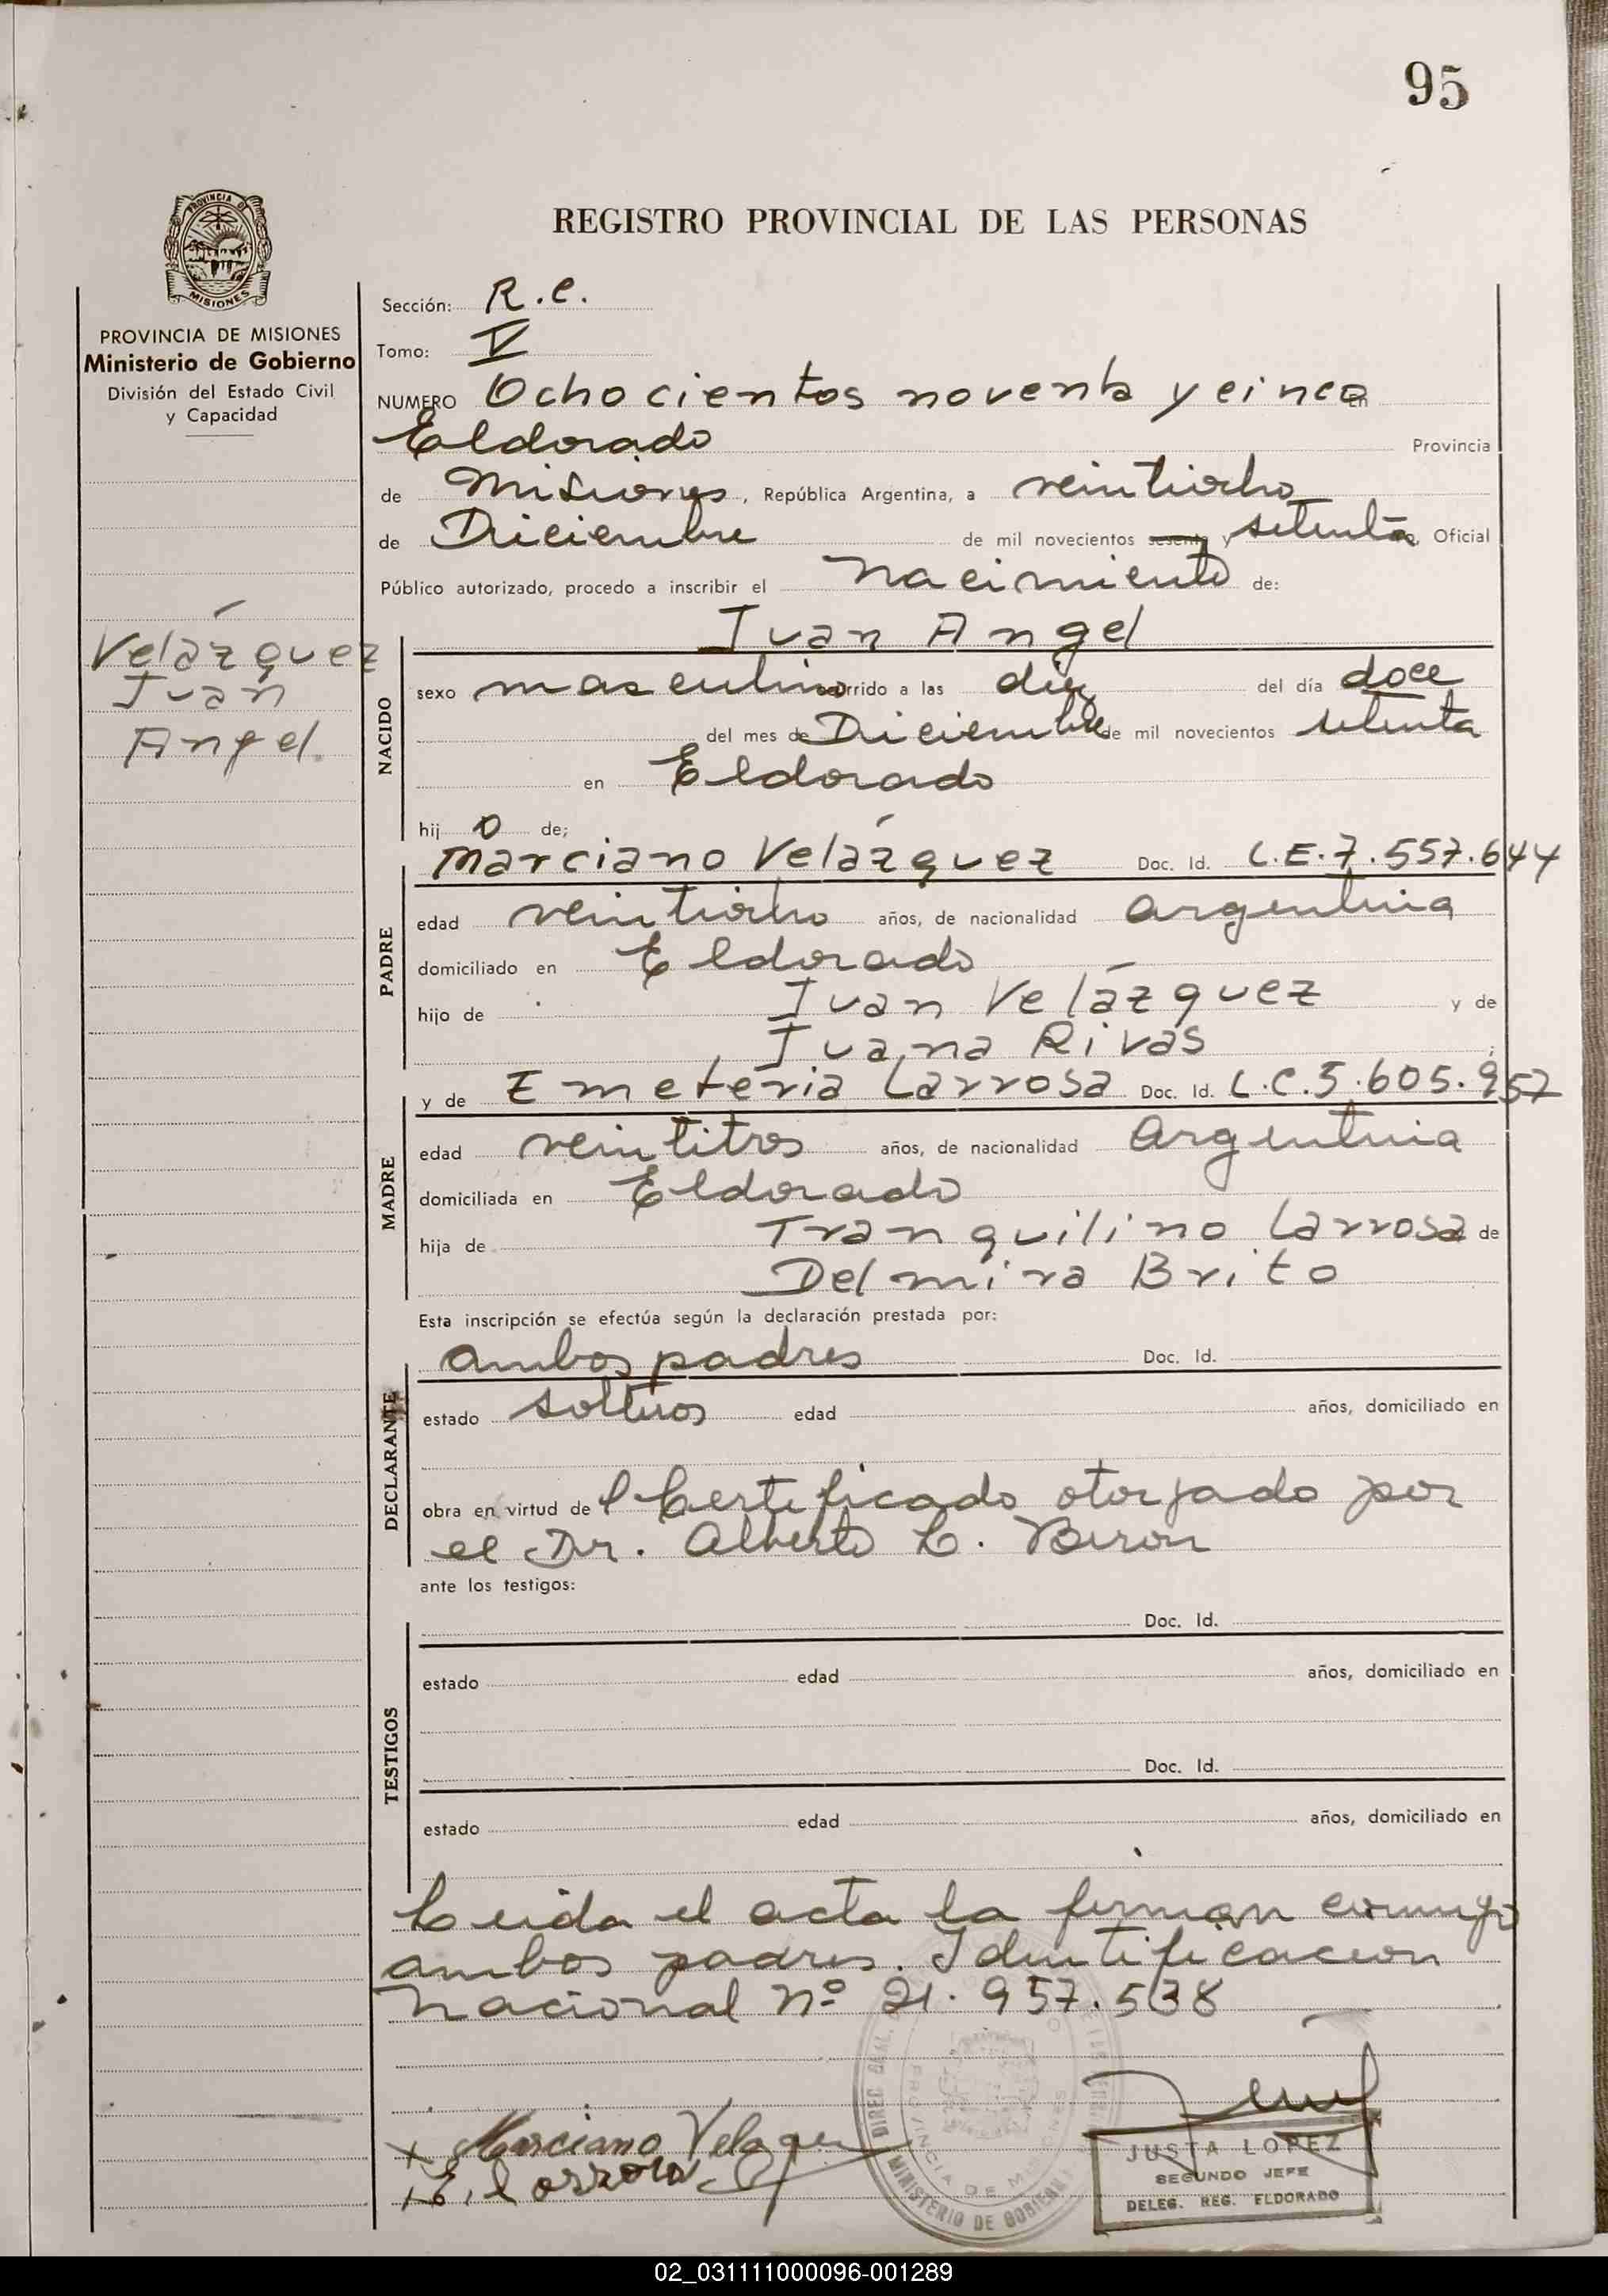 95
PROVINCIA DE
MISIONES
REGISTRO PROVINCIAL DE LAS PERSONAS
PROVINCIA DE MISIONES
Ministerio de Gobierno
División del Estado Civil
y Capacidad
Velázquez
Juan
Angel.
Sección: R.C.
Tomo: V
NUMERO Ochocientos noventa y cinco en
Eldorado Provincia
de Misiones, República Argentina, a veintiocho
de Diciembre de mil novecientos sesenta y setenta Oficial
Público autorizado, procedo a inscribir el nacimiento de:
Juan Angel
NACIDO
sexo masculino ocurrido a las diez del día doce
del mes de Diciembre de mil novecientos setenta
en Eldorado
hij o de;
Marciano Velázquez Doc. Id. L.E.7.557.644
PADRE
edad veintiocho años, de nacionalidad argentina
domiciliado en Eldorado
hijo de Juan Velázquez y de
Juana Rivas
y de Emeteria Larrosa Doc. Id. L.C.5.605.957
MADRE
edad veintitres años, de nacionalidad argentina
domiciliada en Eldorado
hija de Tranquilino Larrosa de
Delmira Brito
Esta inscripción se efectúa según la declaración prestada por:
ambos padres Doc. Id.
DECLARANTE
estado solteros edad años, domiciliado en
obra en virtud de l Certificado otorjado por
el Dr. Alberto L. Biron
ante los testigos:
Doc. Id.
TESTIGOS
estado edad años, domiciliado en
Doc. Id.
estado edad años, domiciliado en
Leida el acta la firman conmigo
ambos padres. Identificacion
nacional nº 21.957.538
Marciano Velazquez
E. Larrosa
MINISTERIO DE GOBIERNO
PROVINCIA DE MISIONES
JUSTA LOPEZ
SEGUNDO JEFE
DELEG. REG. ELDORADO
02_031111000096-001289